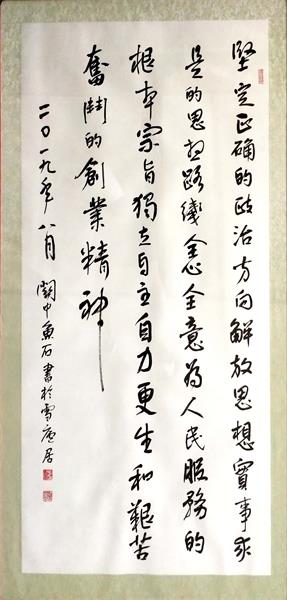 堅定正确的政治方向解放思想實事求
是的思想路綫全心全意為人民服務的
根本宗旨獨立自主自力更生和艱苦
奮鬥的創業精神
二〇一九年八月 中魚石書於雪庵居